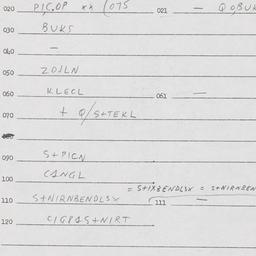 020 PIC.OP xx (075 021 — QOBUK
030 BUKS
040 —
050 ZOJLN
060 KLECL 061 —
070 + Q/S+TEKL
090 S+PICN
100 CANGL
= S+IXBENDLSX = S+NIRNBEN
110 S+NIRNBENDLSX 111 —
120 CIGPAS+NIRT